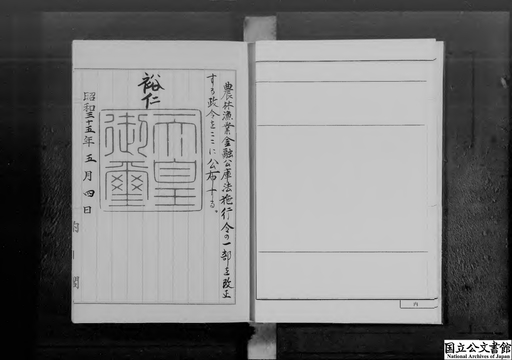 農林漁業金融公庫法施行令の一部を改正
する政令をここに公布する。
裕仁
天皇
御璽
昭和三十五年五月四日
内閣
国立公文書館
National Archives of Japan